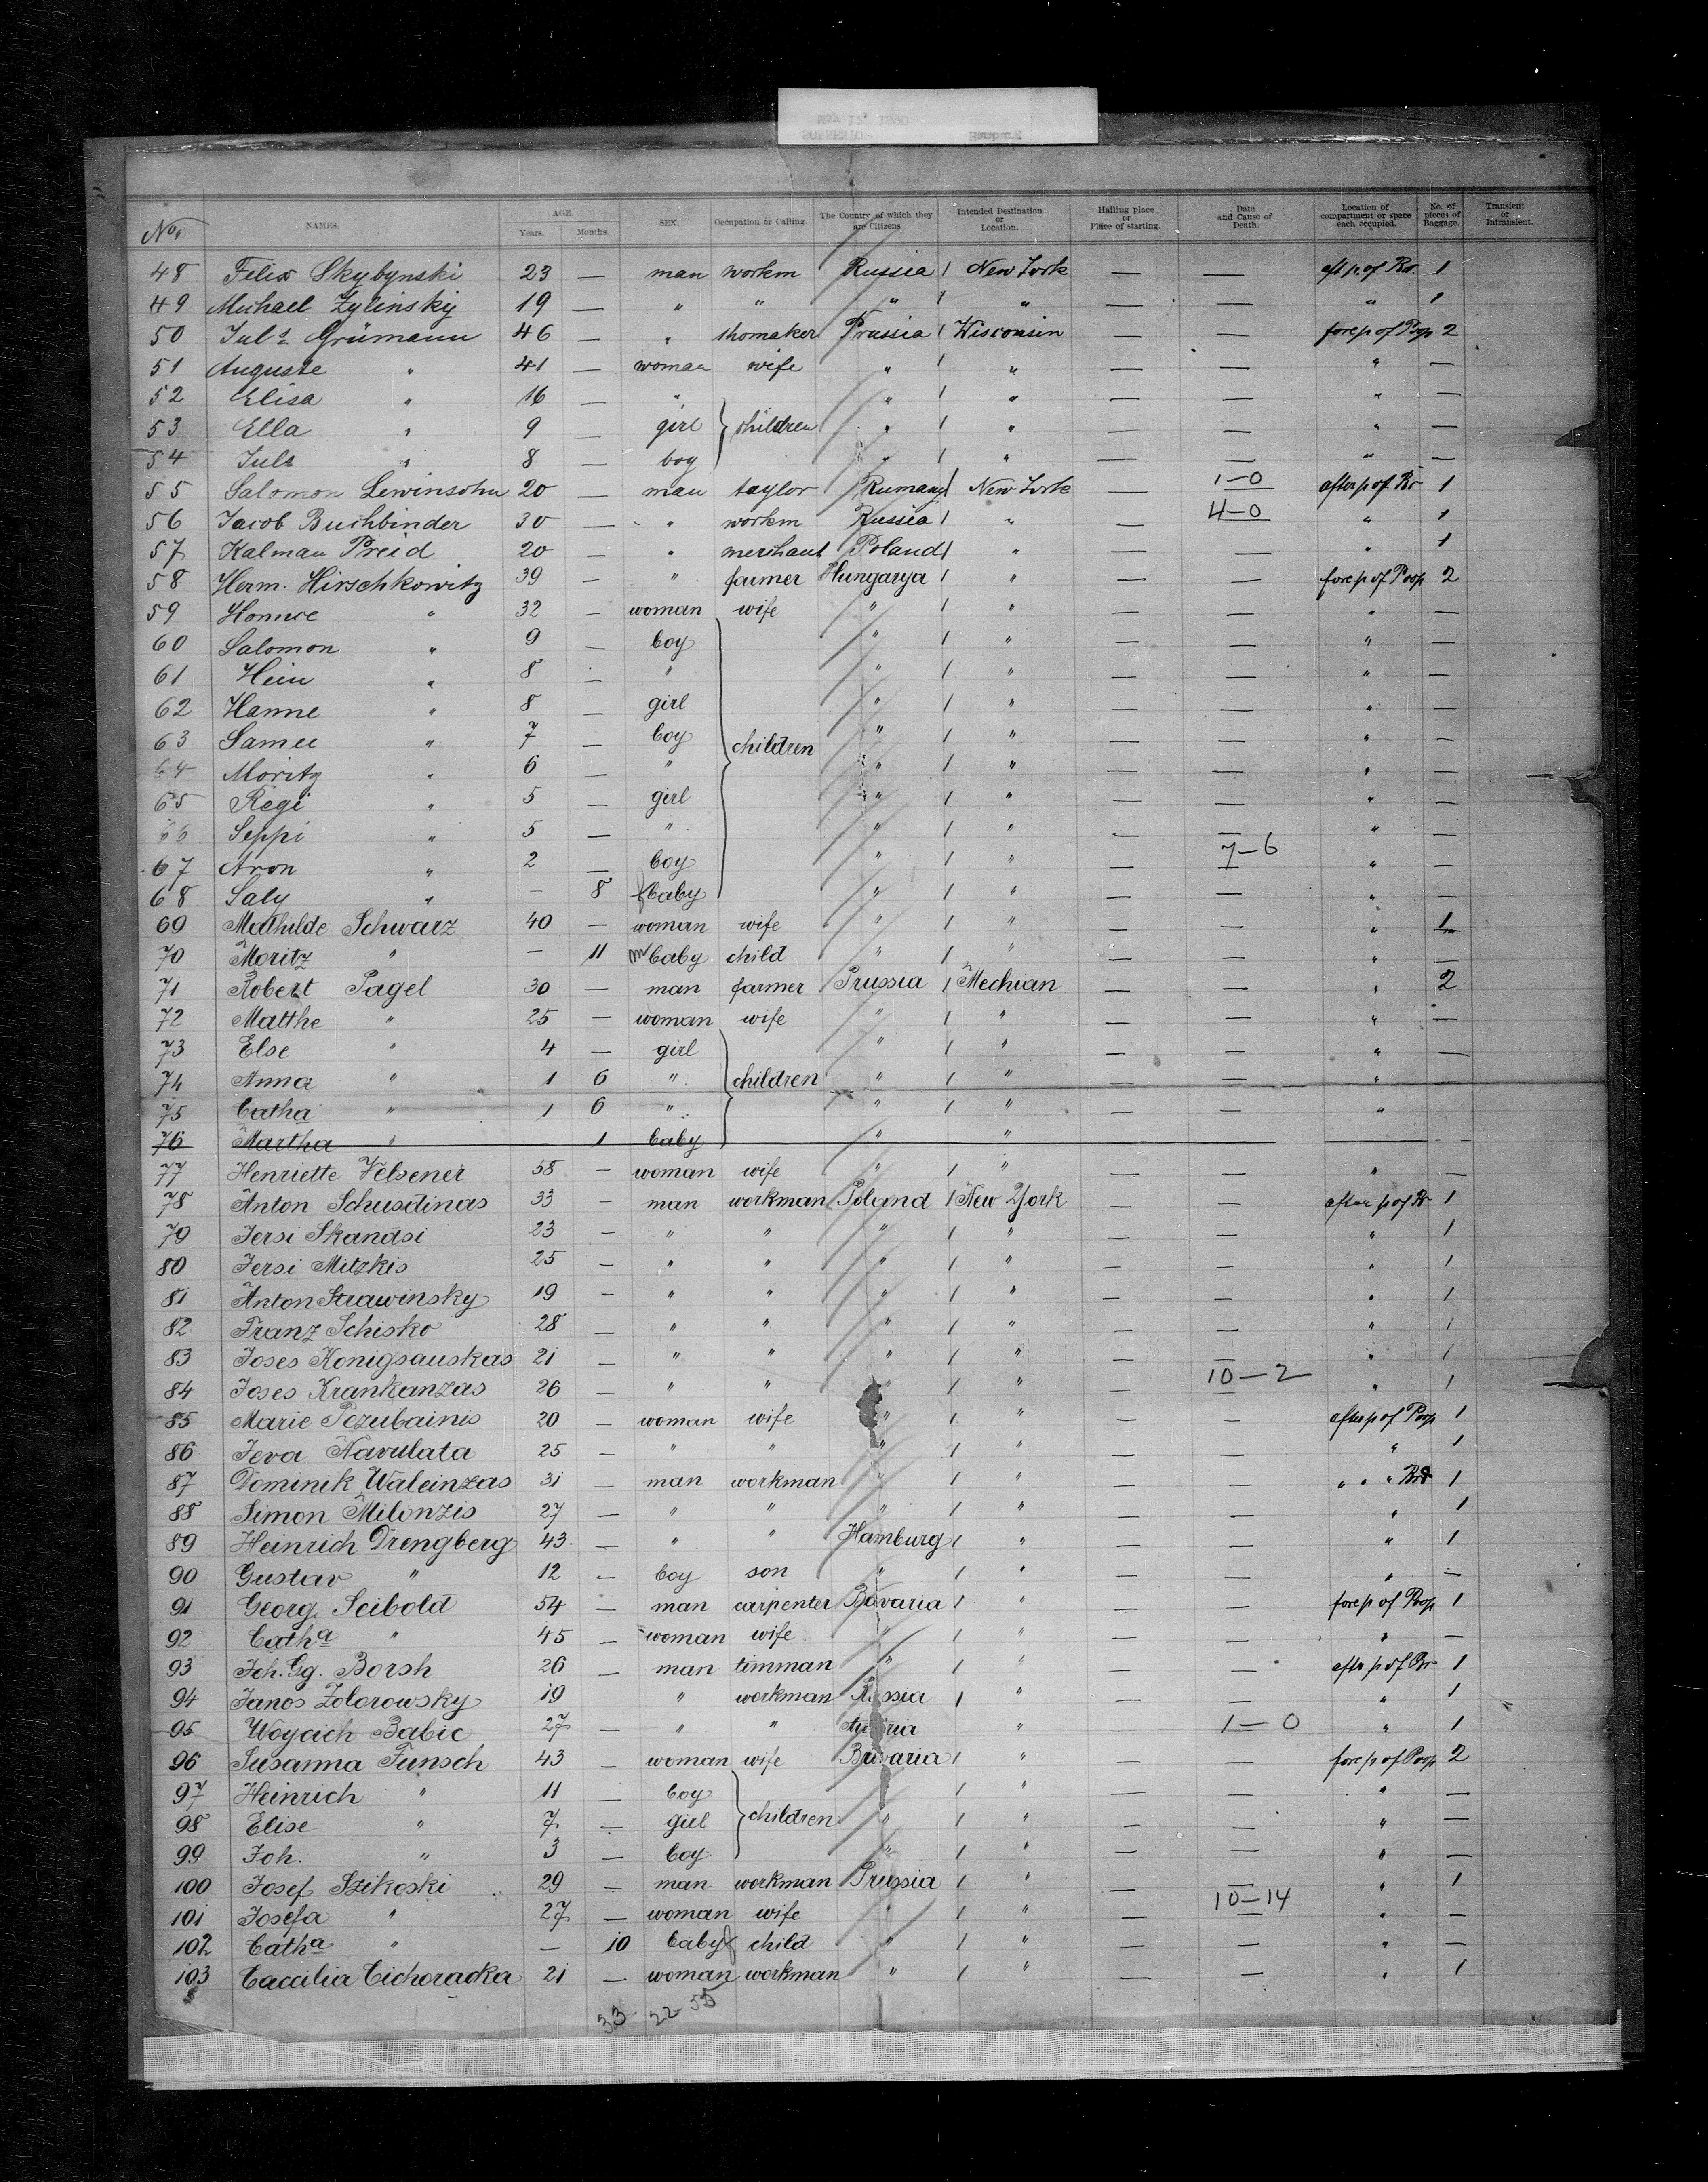 No. NAMES. AGE. Years. Months. SEX. Occupation or Calling. The Country of which they are Citizens Intended Destination or Location. Hailing place or Place of starting. Date and Cause of Death. Location of compartment or space each occupied. No. of pieces of Baggage. Transient or Intransient.
48 Felix Skybynski 23 — man workm Russia 1 New York — — aft p. of Br. 1
49 Michael Zylinskij 19 — " " " 1 " — — " 1
50 Juls Grümann 46 — " shomaker Prussia 1 Wisconsin — — fore p of Poop 2
51 Auguste " 41 — woman wife " 1 " — — " —
52 Elisa " 16 — " " 1 " — — " —
53 Ella " 9 — girl children " 1 " — — " —
54 Juls " 8 — boy " 1 " — — " —
55 Salomon Lewinsohn 20 — man taylor Rumany 1 New York — 1-0 after p of Br 1
56 Jacob Buchbinder 30 — " workm Russia 1 " — 4-0 " 1
57 Kalman Preid 20 — " merchant Poland 1 " — — " 1
58 Herm. Hirschkowitz 39 — " farmer Hungarya 1 " — — fore p of Poop 2
59 Honnie " 32 — woman wife " 1 " — — " —
60 Salomon " 9 — boy " 1 " — — " —
61 Hein " 8 — " " 1 " — — " —
62 Hanne " 8 — girl " 1 " — — " —
63 Samu " 7 — boy children " 1 " — — " —
64 Moritz " 6 — " " 1 " — — " —
65 Regi " 5 — girl " 1 " — — " —
66 Seppi " 5 — " " 1 " — — " —
67 Aron " 2 — boy " 1 " — 7-6 " —
68 Saly " — 8 f baby " 1 " — — " —
69 Mathilde Schwarz 40 — woman wife " 1 " — — " 1
70 Moritz " — 11 m baby child " 1 " — — " —
71 Robert Pagel 30 — man farmer Prussia 1 Mechian — — " 2
72 Matthe " 25 — woman wife " 1 " — — " —
73 Else " 4 — girl " 1 " — — " —
74 Anna " 1 6 " children " 1 " — — "
75 Catha " 1 6 " " 1 " — — "
76 Martha " 1 baby " "
77 Henriette Velsener 58 — woman wife " 1 " — — " —
78 Anton Schusdinas 33 — man workman Poland 1 New York — — after p of Br 1
79 Jersi Skandsi 23 — " " " 1 " — — " 1
80 Jersi Mitzkis 25 — " " " 1 " — — " 1
81 Anton Strawinsky 19 — " " " 1 " — — " 1
82 Franz Schisko 28 — " " " 1 " — — " 1
83 Joses Konigsauskas 21 — " " " 1 " — — " 1
84 Joses Krankanzas 26 — " " " 1 " — 10-2 " 1
85 Marie Pezubainis 20 — woman wife " 1 " — — after p of Poop 1
86 Jeva Navulata 25 — " " " 1 " — — " 1
87 Dominik Waleinzas 31 — man workman " 1 " — — " " " Brd 1
88 Simon Milonzis 27 — " " " 1 " — — " 1
89 Heinrich Drengberg 43 — " " Hamburg 1 " — — " 1
90 Gustav " 12 — boy son " 1 " — — " —
91 Georg Seibold 54 — man carpenter Bavaria 1 " — — fore p of Poop 1
92 Catha " 45 — woman wife " 1 " — — " —
93 Joh. Gg. Borsh 26 — man timman " 1 " — — after p of Br 1
94 Janos Zoborowsky 19 " workman Russia 1 " — — " 1
95 Woycich Babic 27 — " " Austria " 1-0 " 1
96 Susanna Funsch 43 — woman wife Bavaria 1 " — — fore p of Poop 2
97 Heinrich " 11 — boy 1 " — — " —
98 Elise " 7 — girl children " 1 " — — " —
99 Joh. " 3 — boy " 1 " — — " —
100 Josef Szikoski 29 — man workman Prussia 1 " — — " 1
101 Josefa " 27 — woman wife " 1 " — 10-14 " —
102 Catha " — 10 baby f child " 1 " — — " —
103 Caccilia Cichoracka 21 — woman workman " 1 " — — " 1
33 22 55